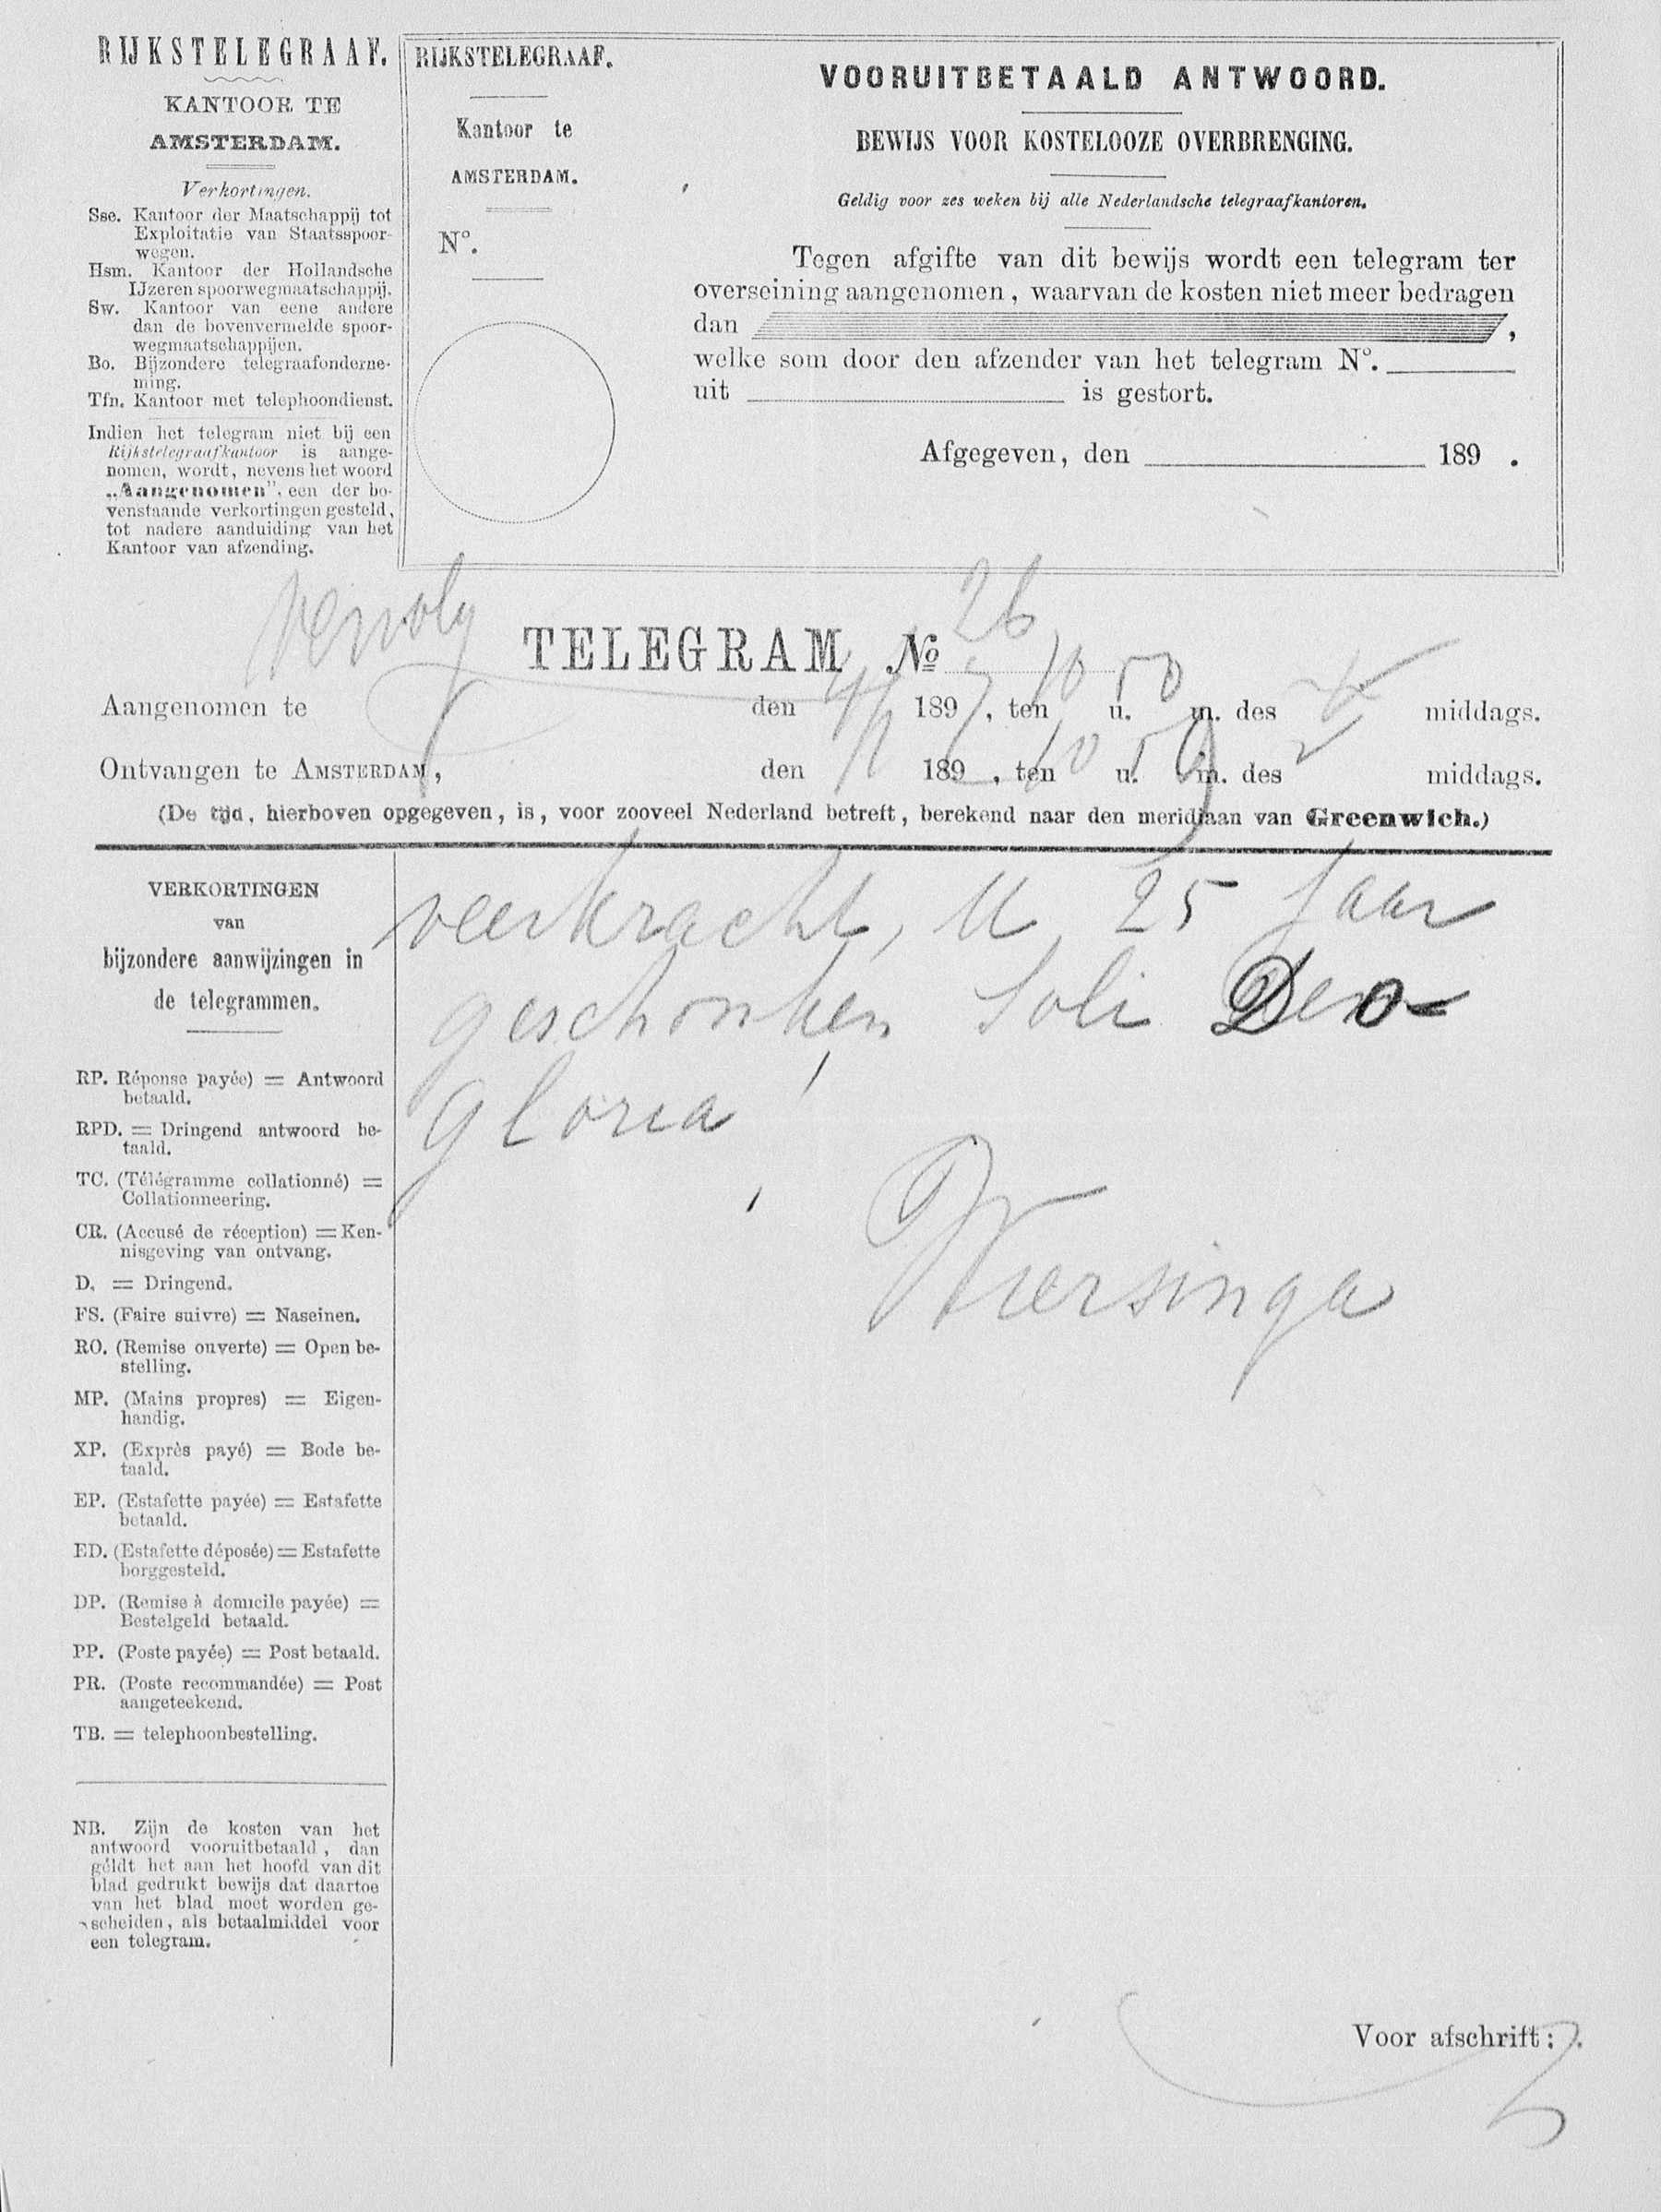 RIJKSTELEGRAAF.
KANTOOR TE
AMSTERDAM.
Verkortingen.
Sse. Kantoor der Maatschappij tot
Exploitatie van Staatsspoor-
wegen.
Hsm. Kantoor der Hollandsche
IJzeren spoorwegmaatschappij.
Sw. Kantoor van eene andere
dan de bovenvermelde spoor-
wegmaatschappijen.
Bo. Bijzondere telegraafonderne-
ming.
Tfn. Kantoor met telephoondienst.
Indien het telegram niet bij een
Rijkstelegraafkantoor is aange-
nomen, wordt, nevens het woord
„Aangenomen", een der bo-
venstaande verkortingen gesteld,
tot nadere aanduiding van het
Kantoor van afzending.
RIJKSTELEGRAAF.
Kantoor te
AMSTERDAM.
N°.
VOORUITBETAALD ANTWOORD.
BEWIJS VOOR KOSTELOOZE OVERBRENGING.
Geldig voor zes weken bij alle Nederlandsche telegraafkantoren.
Tegen afgifte van dit bewijs wordt een telegram ter
overseining aangenomen, waarvan de kosten niet meer bedragen
dan ,
welke som door den afzender van het telegram N°.
uit is gestort.
Afgegeven, den 189 .
Vervolg
TELEGRAM No 26
Aangenomen te den 189 7, ten 10 u. 50 m. des middags.
Ontvangen te AMSTERDAM, den 189 , ten 10 u. 59 m. des middags.
(De tijd, hierboven opgegeven, is, voor zooveel Nederland betreft, berekend naar den meridiaan van Greenwich.)
veerkracht, U 25 jaar
geschonken Soli Deo
gloria!
Wiersinga
VERKORTINGEN
van
bijzondere aanwijzingen in
de telegrammen.
RP. Réponse payée) = Antwoord
betaald.
RPD. = Dringend antwoord be-
taald.
TC. (Télégramme collationné) =
Collationneering.
CR. (Accusé de réception) = Ken-
nisgeving van ontvang.
D. = Dringend.
FS. (Faire suivre) = Naseinen.
RO. (Remise ouverte) = Open be-
stelling.
MP. (Mains propres) = Eigen-
handig.
XP. (Exprès payé) = Bode be-
taald.
EP. (Estafette payée) = Estafette
betaald.
ED. (Estafette déposée) = Estafette
borggesteld.
DP. (Remise à domicile payée) =
Bestelgeld betaald.
PP. (Poste payée) = Post betaald.
PR. (Poste recommandée) = Post
aangeteekend.
TB. = telephoonbestelling.
NB. Zijn de kosten van het
antwoord vooruitbetaald, dan
géldt het aan het hoofd van dit
blad gedrukt bewijs dat daartoe
van het blad moet worden ge-
scheiden, als betaalmiddel voor
een telegram.
Voor afschrift: